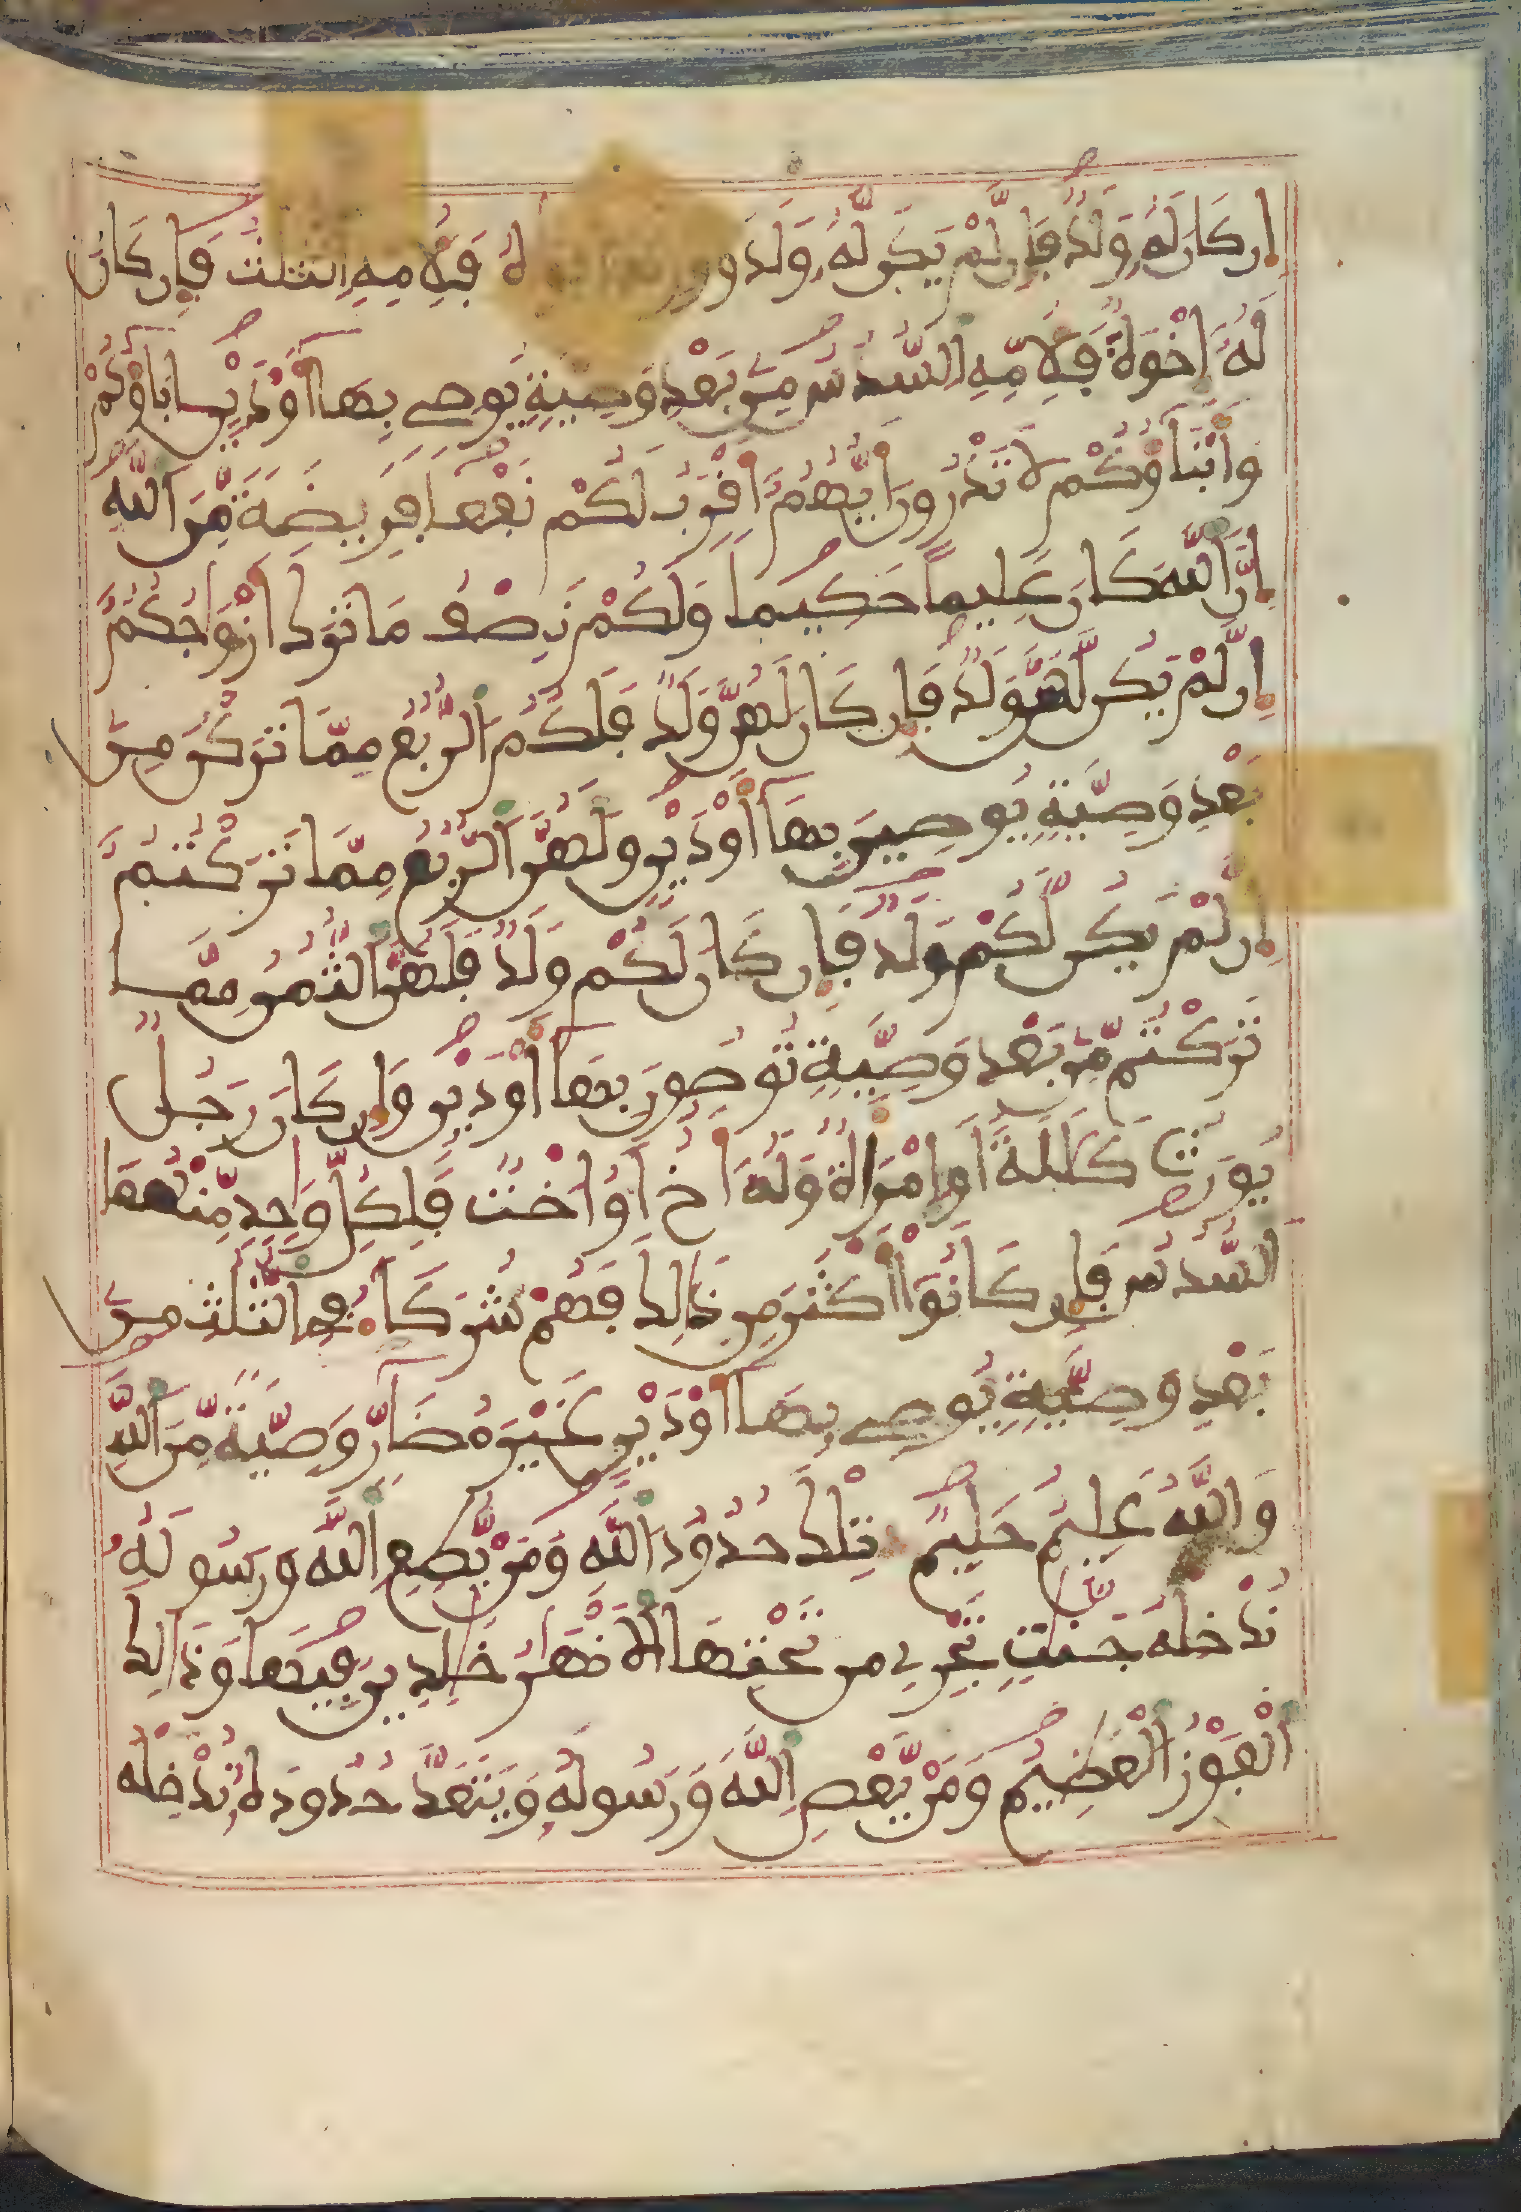 اِن كَانَ لَهُۥ وَلَدٌ فَإِن لَّمْ يَكُن لَّهُۥ وَلَدٌ وَوَرِ ـهُ فَلِأُمِّهِ اِلثُّلُثُ فَإِن كَانَ
لَهُۥ إِخْوَةٌ فَلِأُمِّهِ اِلسُّدُسُ مِنۢ بَعْدِ وَصِيَّةٍ يُوصِے بِهَا أَوْ دَيْنٍ ءَابَآؤُكُمْ
وَأَبْنَآؤُكُمْ لَا تَدْرُونَ أَيُّهُمُۥ أَقْرَبُ لَكُمْ نَفْعاً فَرِيضَةً مِّنَ اَللَّهِ
إِنَّ اَللَّهَ كَانَ عَلِيماً حَكِيماً وَلَكُمْ نِصْفُ مَا تَرَكَ أَزْوَاجُكُمُۥ
إِن لَّمْ يَكُن لَّهُنَّ وَلَدٌ فَإِن كَانَ لَهُنَّ وَلَدٌ فَلَكُمُ اُلرُّبُعُ مِمَّا تَرَكْنَ مِنۢ
بَعْدِ وَصِيَّةٍ يُوصِينَ بِهَا أَوْ دَيْنٍ وَلَهُنَّ اَلرُّبُعُ مِمَّا تَرَكْتُمُۥ
إِن لَّمْ يَكُن لَّكُمْ وَلَدٌ فَإِن كَانَ لَكُمْ وَلَدٌ فَلَهُنَّ اَلثُّمُنُ مِمَّا
تَرَكْتُم مِّنۢ بَعْدِ وَصِيَّةٍ تُوصُونَ بِهَا أَوْ دَيْنٍ وَإِن كَانَ رَجُلٌ
يُورَثُ كَلَلَةً أَوِ اِمْرَأَةٌ وَلَهُۥ أَخٌ أَوُ اخْتٌ فَلِكُلِّ وَاحِدٍ مِّنْهُمَا
اَلسُّدُسُ فَإِن كَانُوٓاْ أَكْثَرَ مِن ذَالِكَ فَهُمْ شُرَكَآءُ فِے اِلثُّلُثِ مِنۢ
بَعْدِ وَصِيَّةٍ يُوصِے بِهَا أَوْ دَيْنٍ غَيْرَ مُضَآرٍّ وَصِيَّةً مِّنَ اَللَّهِ
وَاللَّهُ عَلِيمٌ حَلِيمٌ تِلْكَ حُدُودُ اُللَّهِ وَمَنْ يُّطِعِ اِللَّهَ وَرَسُولَهُۥ
نُدْخِلْهُ جَنَّتٍ تَجْرِے مِن تَحْتِهَا اَلَانْهَرُ خَلِدِينَ فِيهَا وَذَالِكَ
اَلْفَوْزُ اُلْعَظِيمُ وَمَنْ يَّعْصِ اِللَّهَ وَرَسُولَهُۥ وَيَتَعَدَّ حُدُودَهُۥ نُدْخِلْهُ